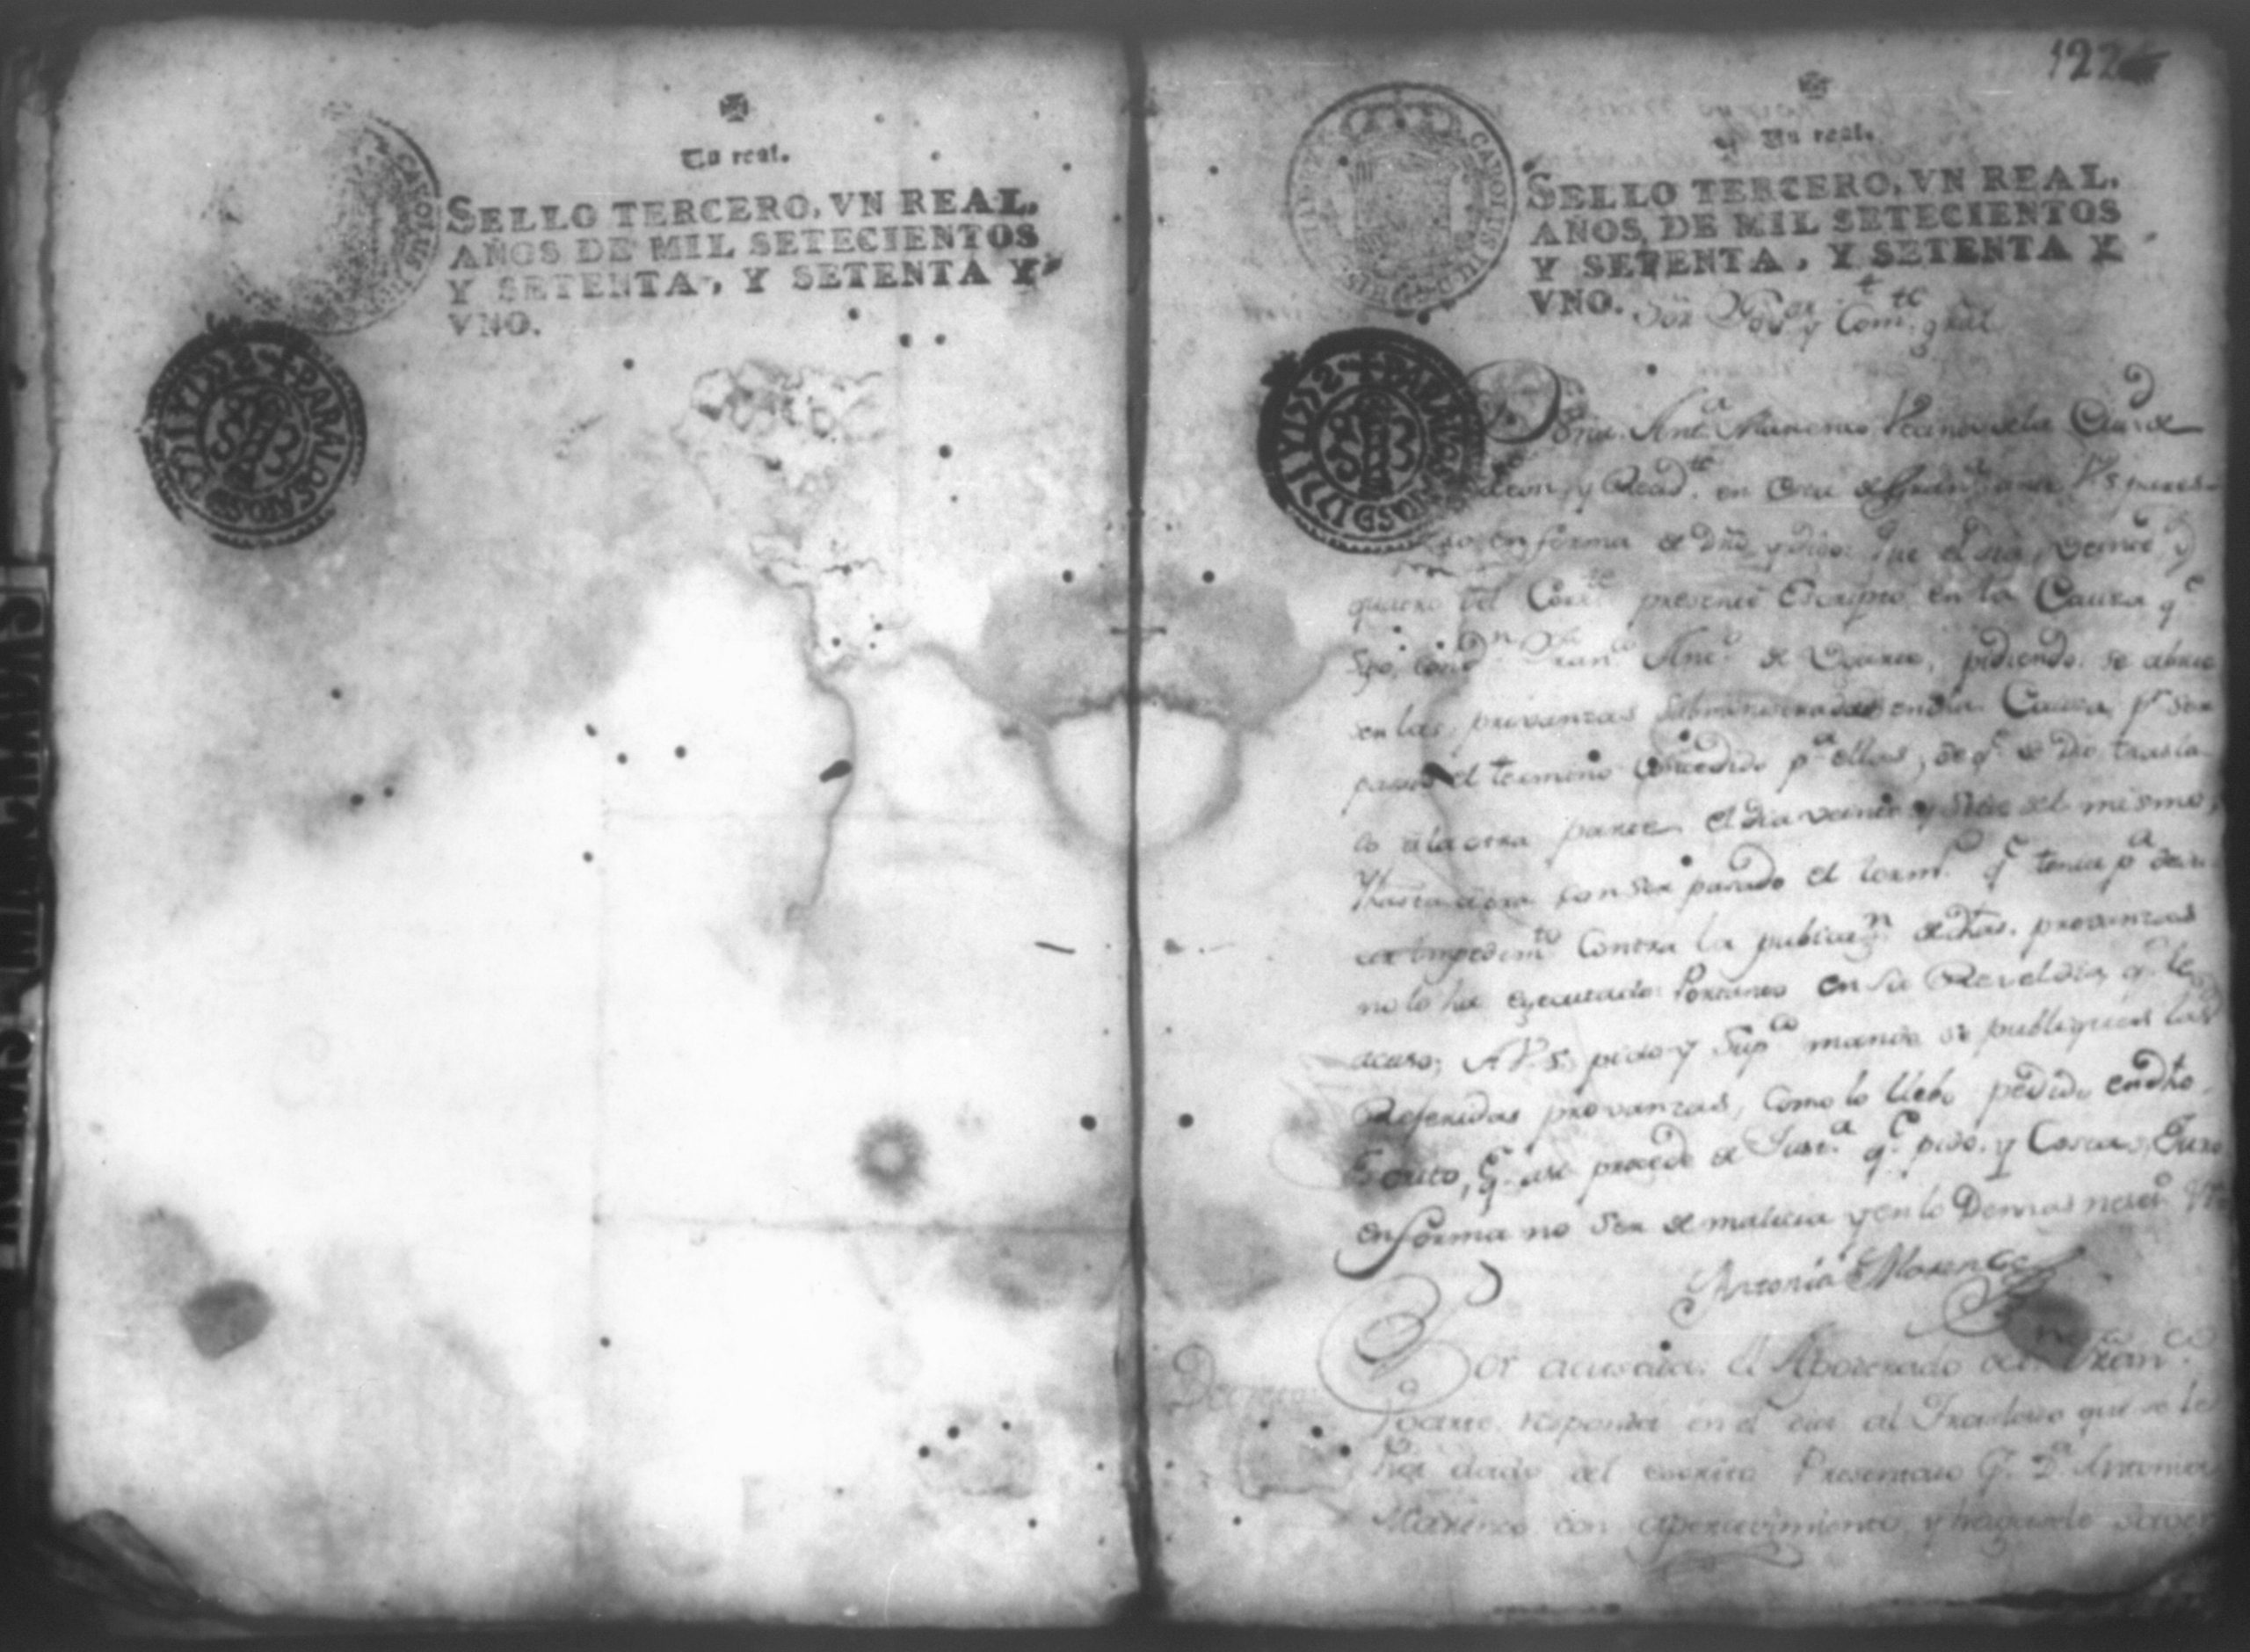 Un real.
SELLO TERCERO, VN REAL,
AÑOS DE MIL SETECIENTOS
Y SETENTA, Y SETENTA Y
VNO.
CAROLUS
PARA LOS AÑOS D 1771 Y 1772
122
Un real.
SELLO TERCERO, VN REAL,
AÑOS DE MIL SETECIENTOS
Y SETENTA, Y SETENTA Y
VNO. Sor Gov.or y Com.te gral
CAROLUS III D G
PARA LOS AÑOS D 1771 Y 1772
Dona Ant.a Marenco
y Resid.te en
en forma de dro, y digo: Que el dia veinte y
quatro del Corr.te presente Escripto en la Causa q.e
sigo con D.n Fran.co Ant.o de Ygarte, pidiendo se abrie
sen las provanzas subministradas en dha Causa, p.r ser
pasado el termino concedido p.a ellas, de q.e se dio trasla
do a la otra parte el dia veinte y siete del mismo,
Y hasta aora con ser pasado el term.o q.e tenia p.a
impedim.to Contra la publicaz.n de dhas. provanzas
no lo ha executado: Portanto en su Reveldia, q.e le
acuso; A V.S. pido y Sup.co mande se publiquen las
Referidas provanzas, como lo llebo pedido en dho
Escrito, q.e asi procede de Just.a q.e pido, y Costas, Juro
en forma no ser de malicia y en lo Demas neses.o V.a
Antonia Marenco
Por acusada: el Apoderado de D.n Fran.co
Ygarte responda en el dia al Traslado que se le
ha dado del escrito Presentado P.r D.a Antonia
Marenco con apercevimiento, y hagasele saver